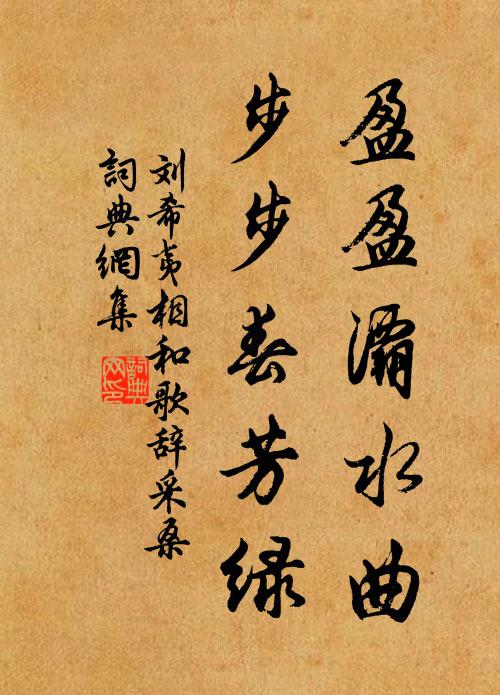 盈盈灞水曲
步步春芳绿
刘希夷相和歌辞采桑
詞典網集
詞典网印